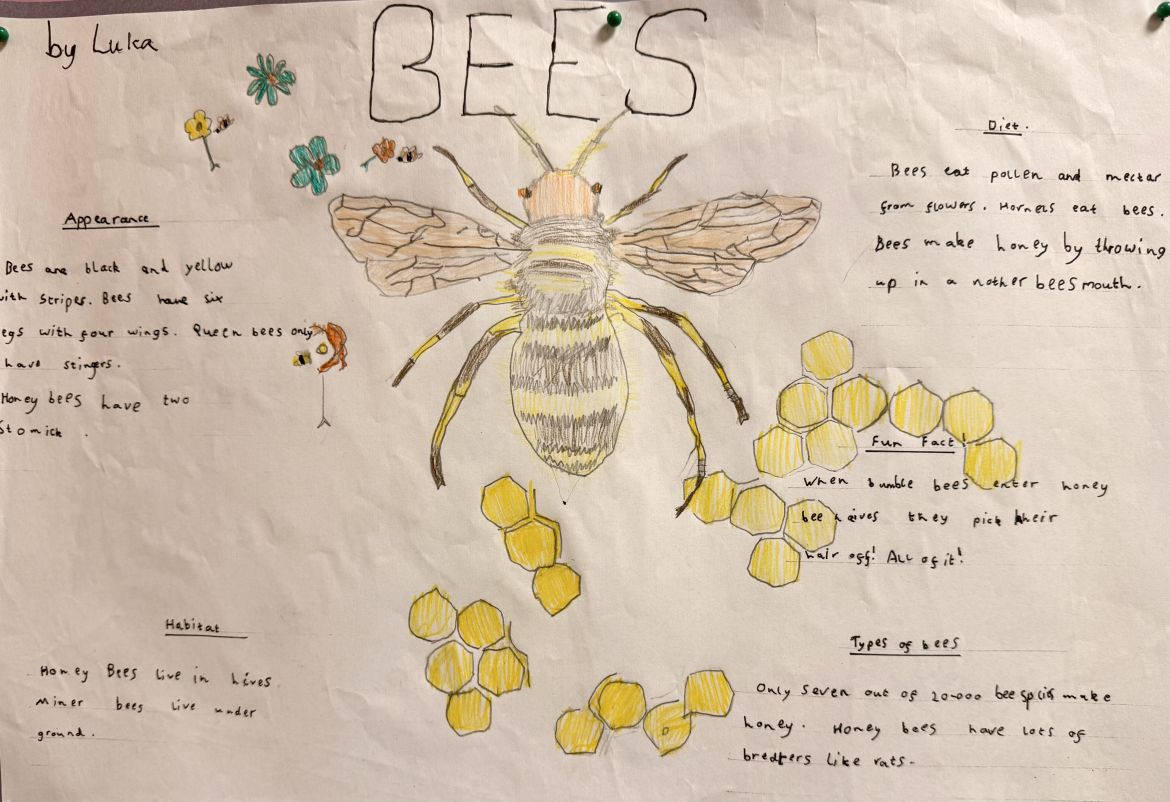 by Luka
BEES
Appearance
Bees are black and yellow
with stripes. Bees have six
egs with four wings. Queen bees only
have stingers.
Honey bees have two
Stomick.
Diet.
Bees eat pollen and nectar
from flowers. Hornets eat bees.
Bees make honey by throwing
up in a nother bees mouth.
Fun Fact!
When bumble bees enter honey
bee haives they pick their
hair off! All of it!
Habitat
Honey Bees live in hives
Miner bees live under
ground.
Types of bees
Only seven out of 20000 bee make
honey. Honey bees have lots of
like rats.